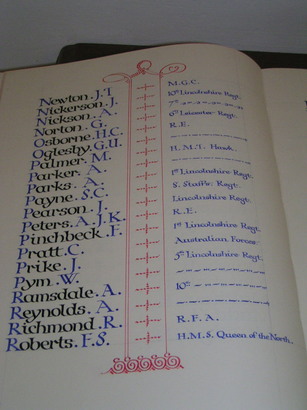 Newton. J.T M.G.C.
Nickerson. J. 10th Lincolnshire Regt.
Nickson. A. 7th
Norton. G. 6th Leicester Regt.
Osborne. H.C. R.E.
Oglesby. G.U.
Palmer. M. H.M.T. Hawk.
Parker. A.
Parks. A. 1st Lincolnshire Regt.
Payne. S.C. S. Staffs. Regt.
Pearson. J. Lincolnshire Regt.
Peters. A.J.K. R.E.
Pinchbeck. F. 1st Lincolnshire Regt.
Pratt. C. Australian Forces
Prike. J. 5th Lincolnshire Regt.
Pym. W.
Ramsdale. A. 10th
Reynolds. A.
Richmond. R. R.F.A.
Roberts. F.S. H.M.S. Queen of the North.